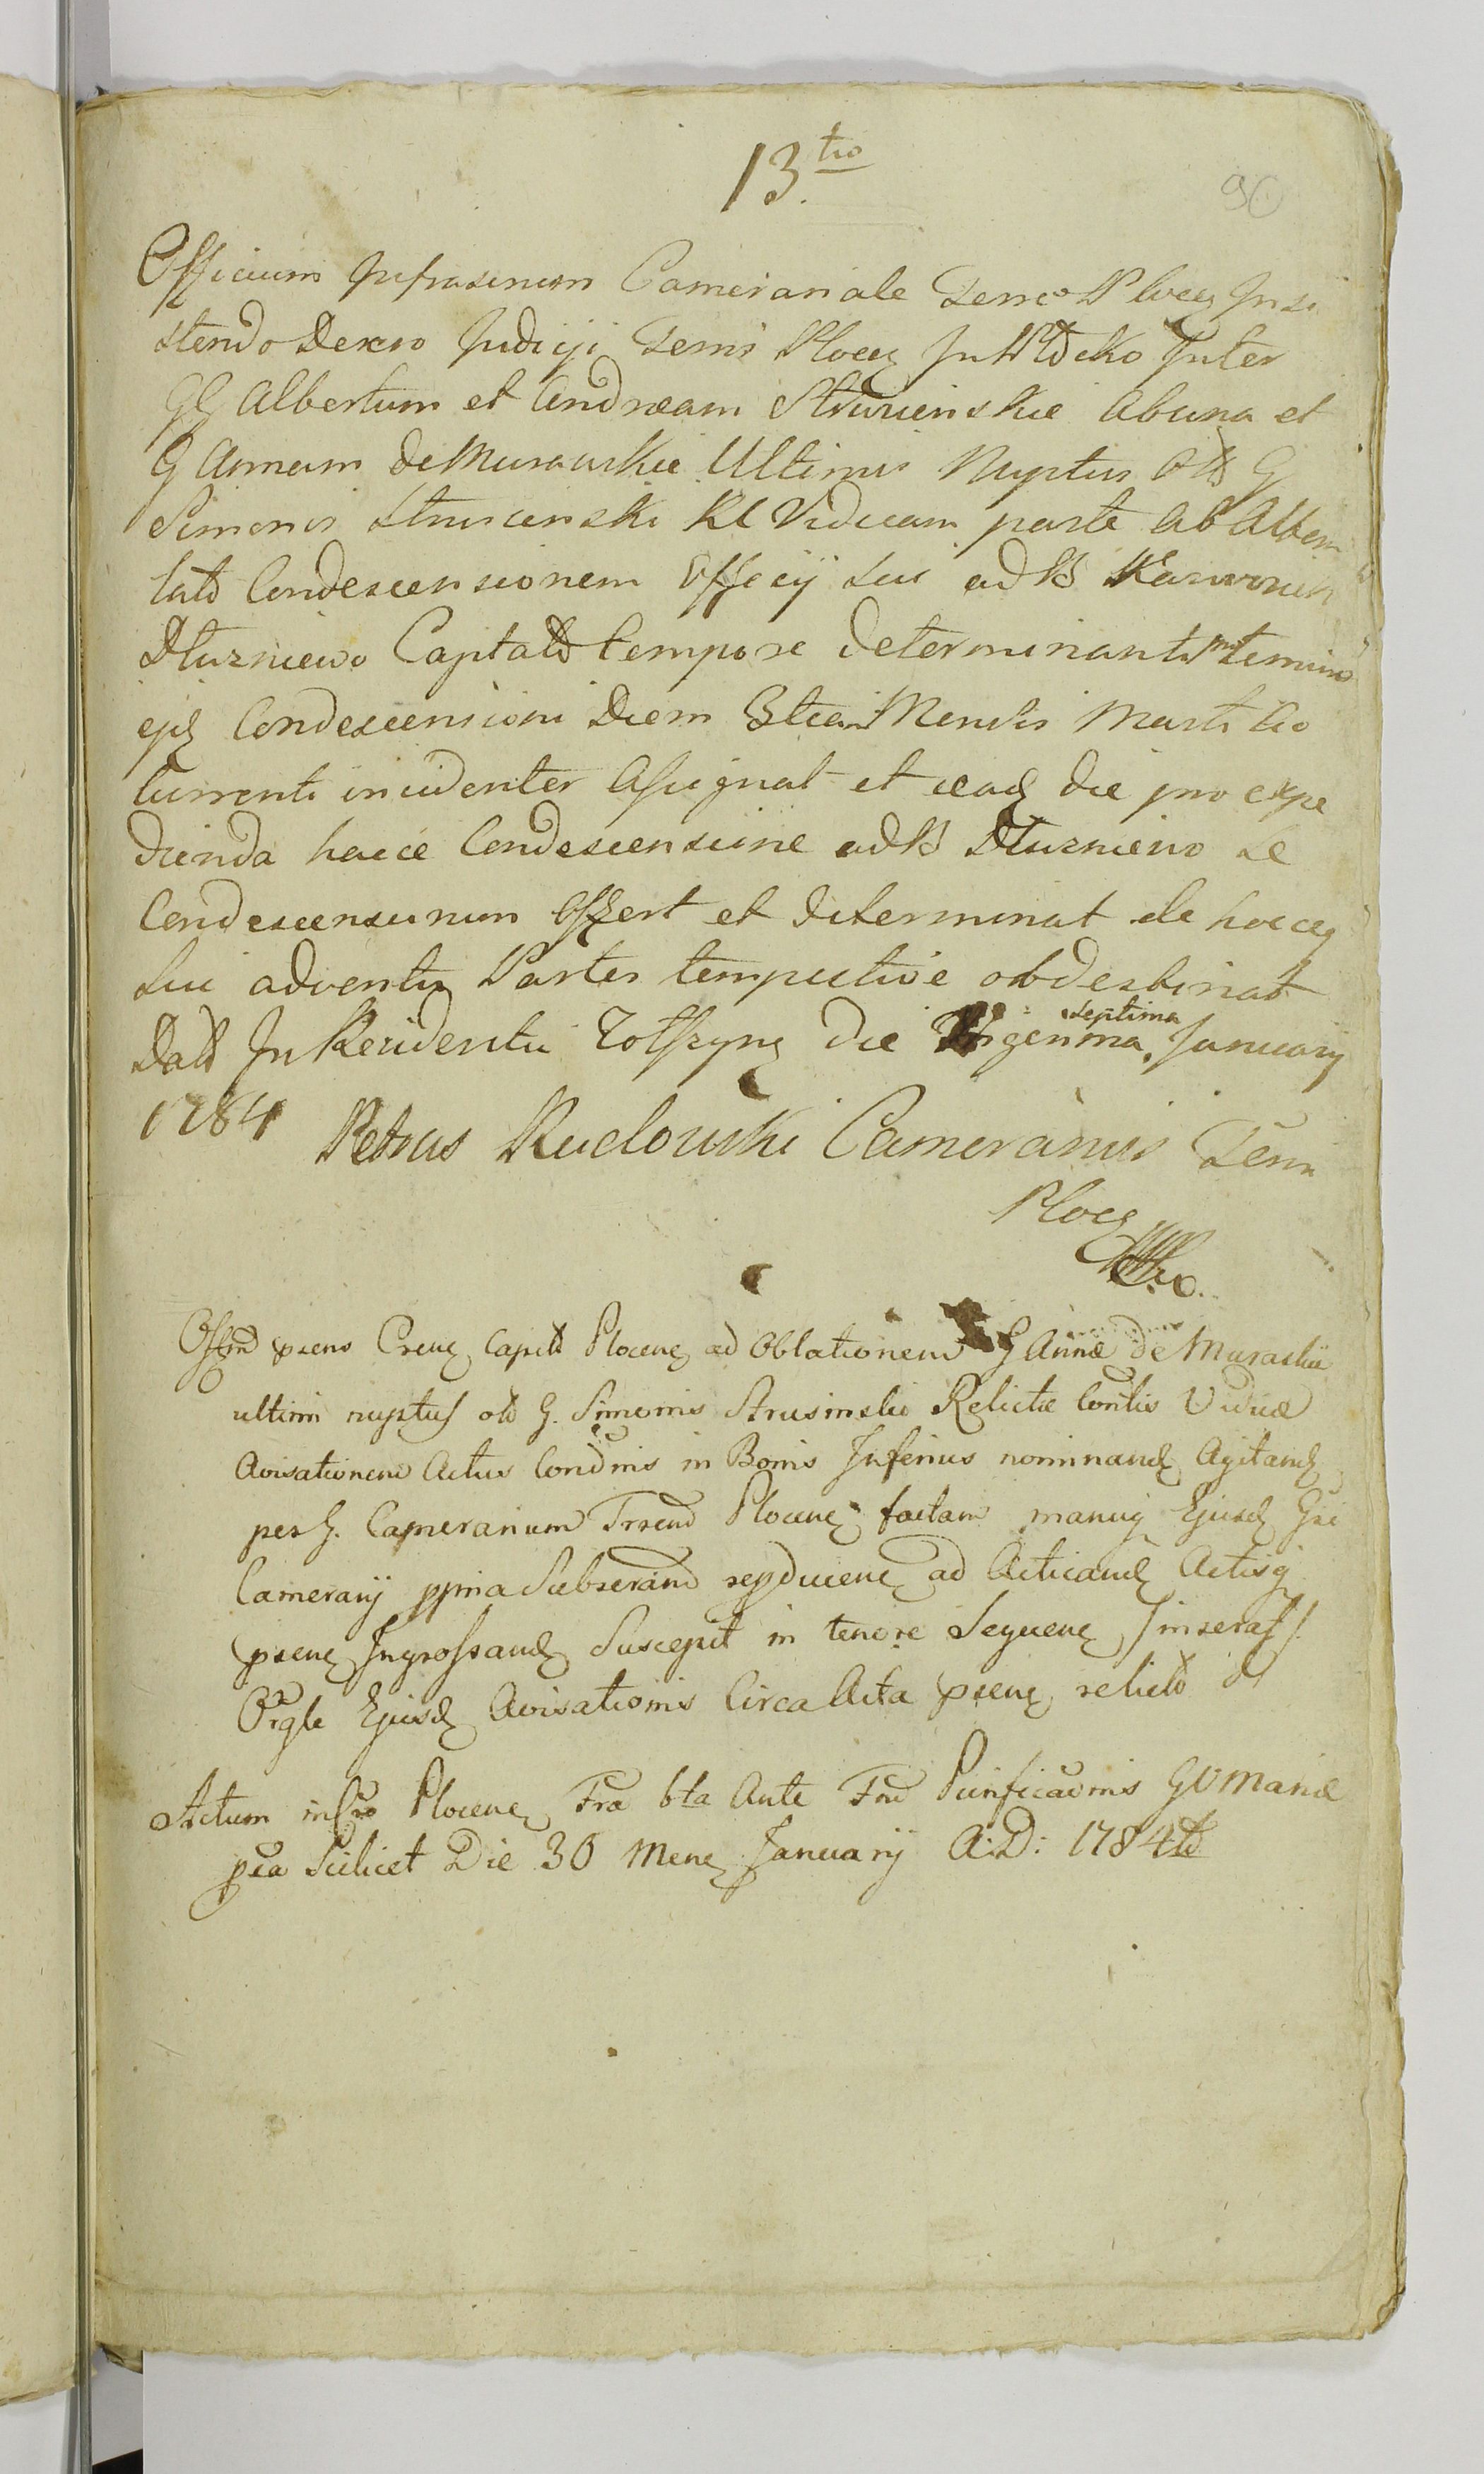 13.tio
96
Officium Infrascrium Camerariale Terre Plocq Insi
stendo Decreto Judicij Terris Plocq In Ptocko Inter
GG Albertum et Andream Strusienskie ab una et
G Annam de Murawskie Ultimis Nuptus Otd G
Simonis Strusienski Rl Viduam parte ab Altera
latd Condescensionem Officij sui ad B Karwowek
Dłuzniewo Captatd tempore determinant terminu
ejq Condescensioni Diem 8tiam Mensis Marti Ao
Currenti incidenter Assignat et eadq die pro expe
dienda hacce Condescensiine ad B Dłuzniewo se
Condescensurum Offert et determinat de hocceq
sui adventu Partes tempestive obdestinat
Datd In Residentii die Vigesima septima January
1784 Petrus Rudowski Camerarius Terr
Plocq
Offm psens Crenq Capitd Plocenq ad Oblationem G Annæ de Muraskie
ultimi nuptus otd G. Simonis Strusinski Relictæ Contis Viduæ
Avisationem Actus Condnis in Bonis Inferius nominandq Agitandq
per G. Camerarium Trrem Plocenq factam manuq Ejusdq Gsi
Camerarij ppria Subscram repducenq ad Acticandq Actisq
psenq Ingrossandq Suscepit in tenore Sequenq /inseras/
Orgle Ejusdq Avisationis Circa Acta psenq relictd
Actum in Cro Plocenq Fra 6ta Ante Fm Purificaonis GVMariæ
pxa Scilicet Die 30 Menq January A:D: 1784td